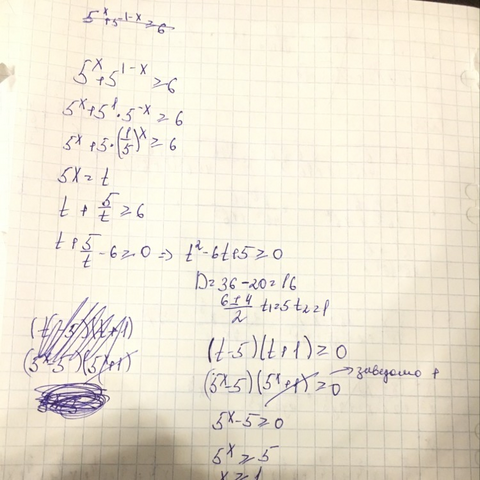 5^x+5^{1-x}≥6
5^x+5^{1-x}≥6
5^x+5^1·5^{-x}≥6
5^x+5·(1/5)^x≥6
5^x=t
t+5/t≥6
t+5/t-6≥0 => t^2-6t+5≥0
D=36-20=16
(6±4)/2 t_1=5 t_2=1
(t-5)(t+1)
(5^x-5)(5^x+1)
(t-5)(t+1)≥0
(5^x-5)(5^x+1)≥0 → заведомо +
5^x-5≥0
5^x≥5
x≥1